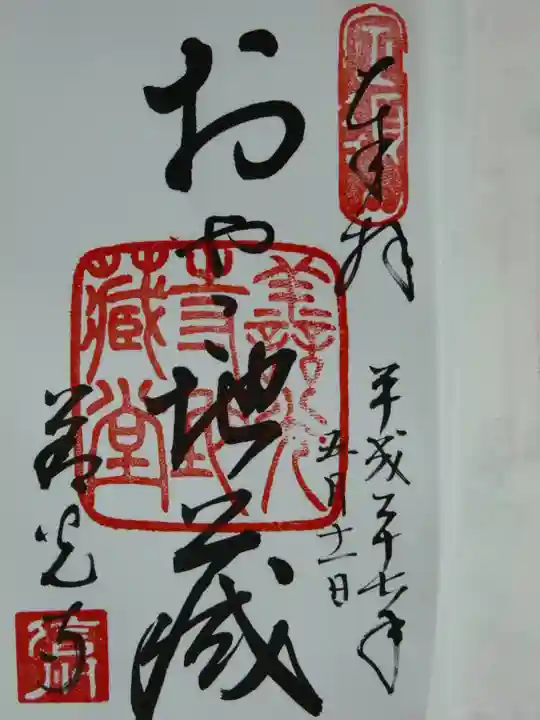 奉拝
平成二十七年
五月十一日
おやこ地蔵
善光寺地蔵堂
善光寺